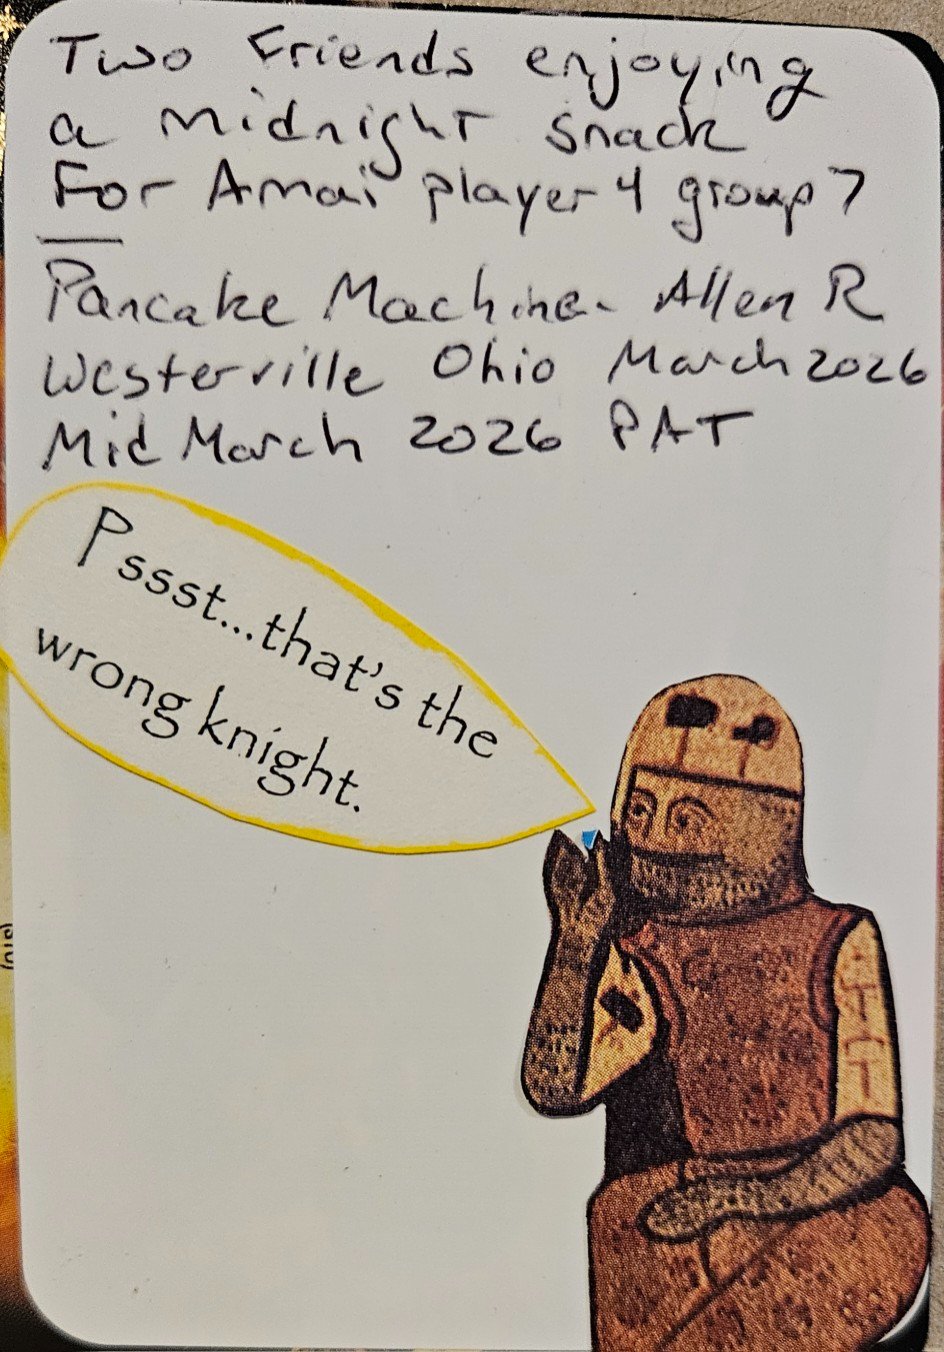 Two Friends enjoying
a midnight snack
For Amai player 4 group 7
Pancake Machine - Allen R
Westerville Ohio March 2026
Mid March 2026 PAT
Pssst...that's the
wrong knight.